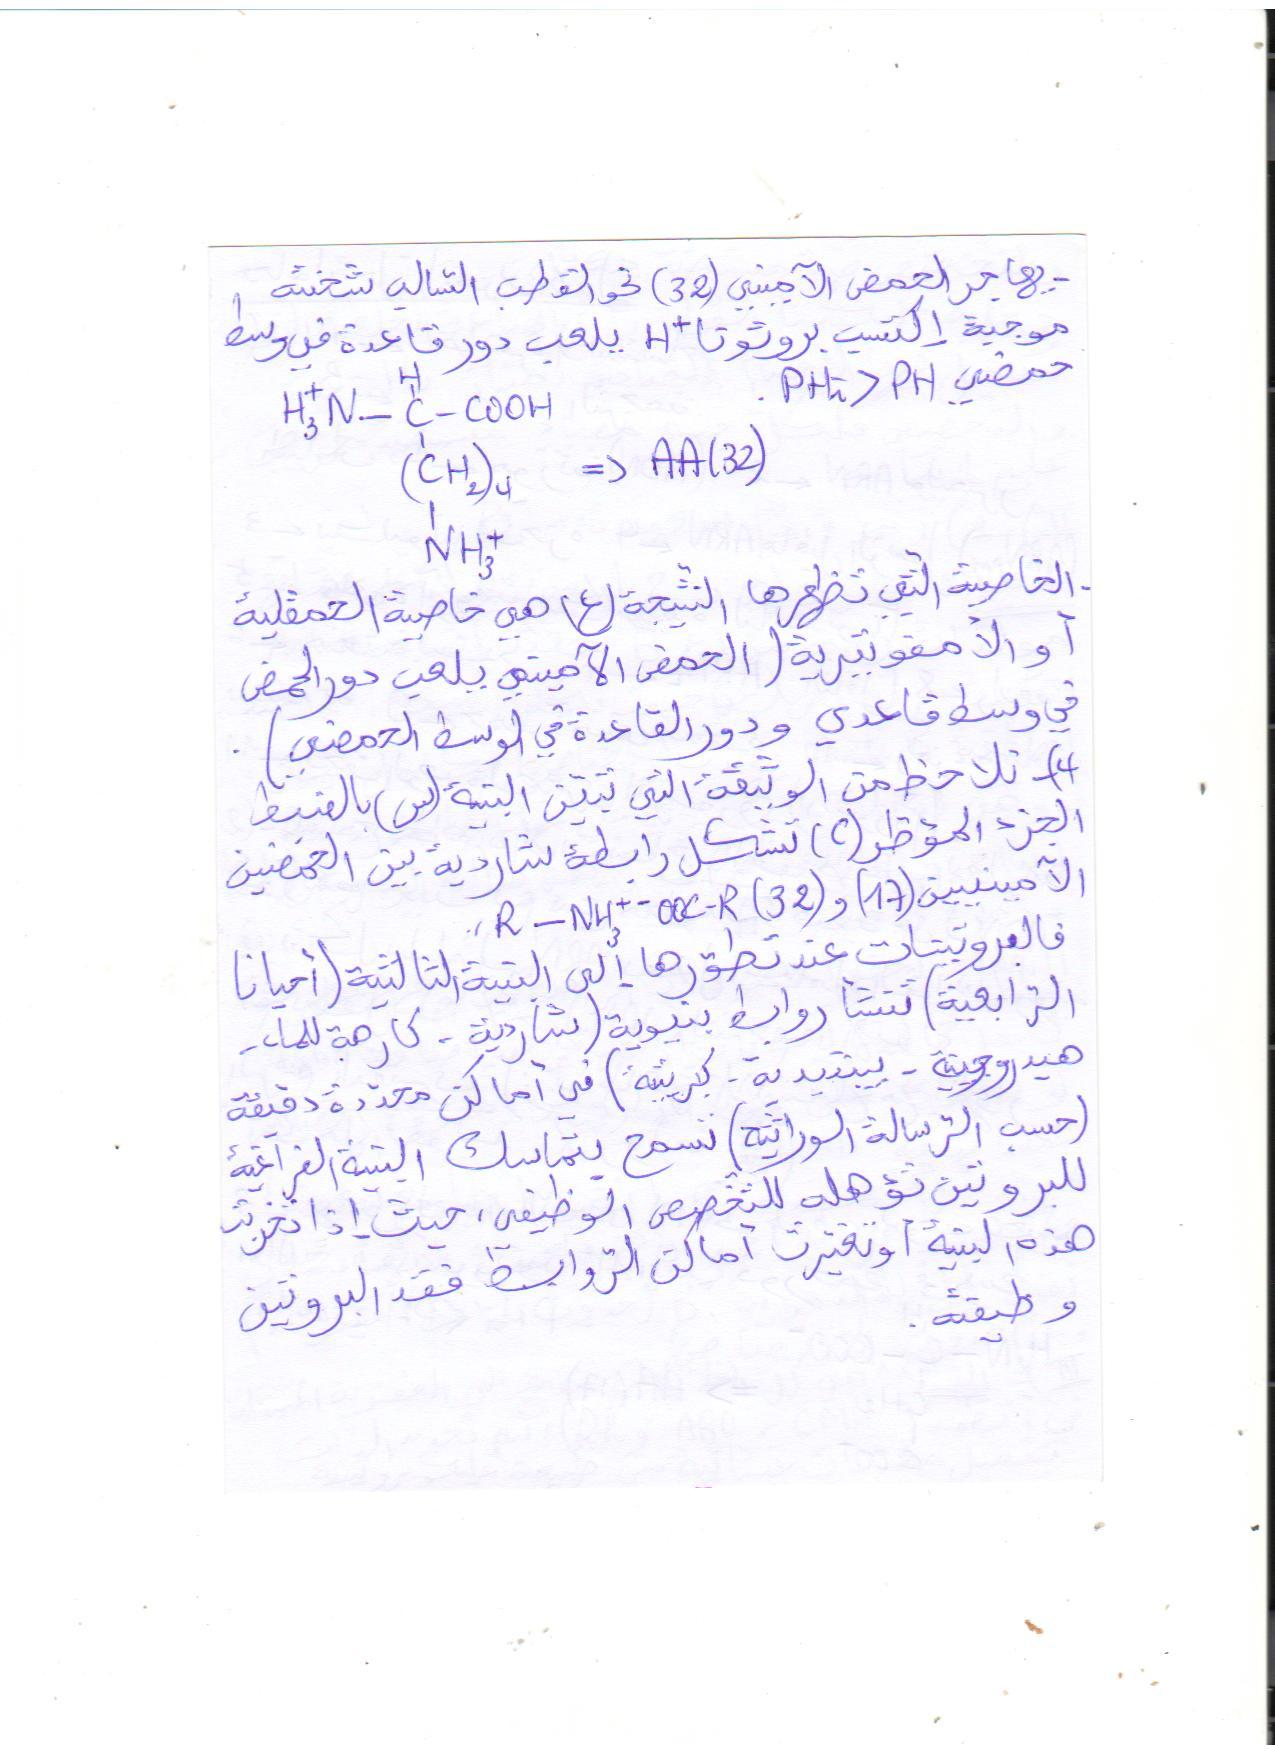 - يهاجر الحمض الآميني (32) نحو القطب السالب شحنته
موجبة إكتسب بروتونا H+ يلعب دور قاعدة في وسط
حمضي PHi > PH .
H
H3+N - C - COOH
(CH2)4 => AA(32)
NH3+
- الخاصية التي تظهرها النتيجة (ع) هي خاصية الحمقلية
أو الأمفوتيرية (الحمض الآميني يلعب دور الحمض
في وسط قاعدي ودور القاعدة في الوسط الحمضي) .
4)- نلاحظ من الوثيقة التي تبين البنية (س) بالضبط
الجزء المؤطر (C) تشكل رابطة شاردية بين الحمضين
الآمينيين (17) و (32) R - NH3+ -OOC-R ،
فالبروتينات عند تطورها إلى البنية الثالثية (أحيانا
الرابعية) تنشأ روابط بنيوية (شاردية - كارهة للماء -
هيدروجينية - ببتيدية - كبريتية) في أماكن محددة دقيقة
(حسب الرسالة الوراثية) تسمح بتماسك البنية الفراغية
للبروتين تؤهله للتخصص الوظيفي، حيث إذا تخربت
هذه البنية أو تغيرت أماكن الروابط فقد البروتين
وظيفته .